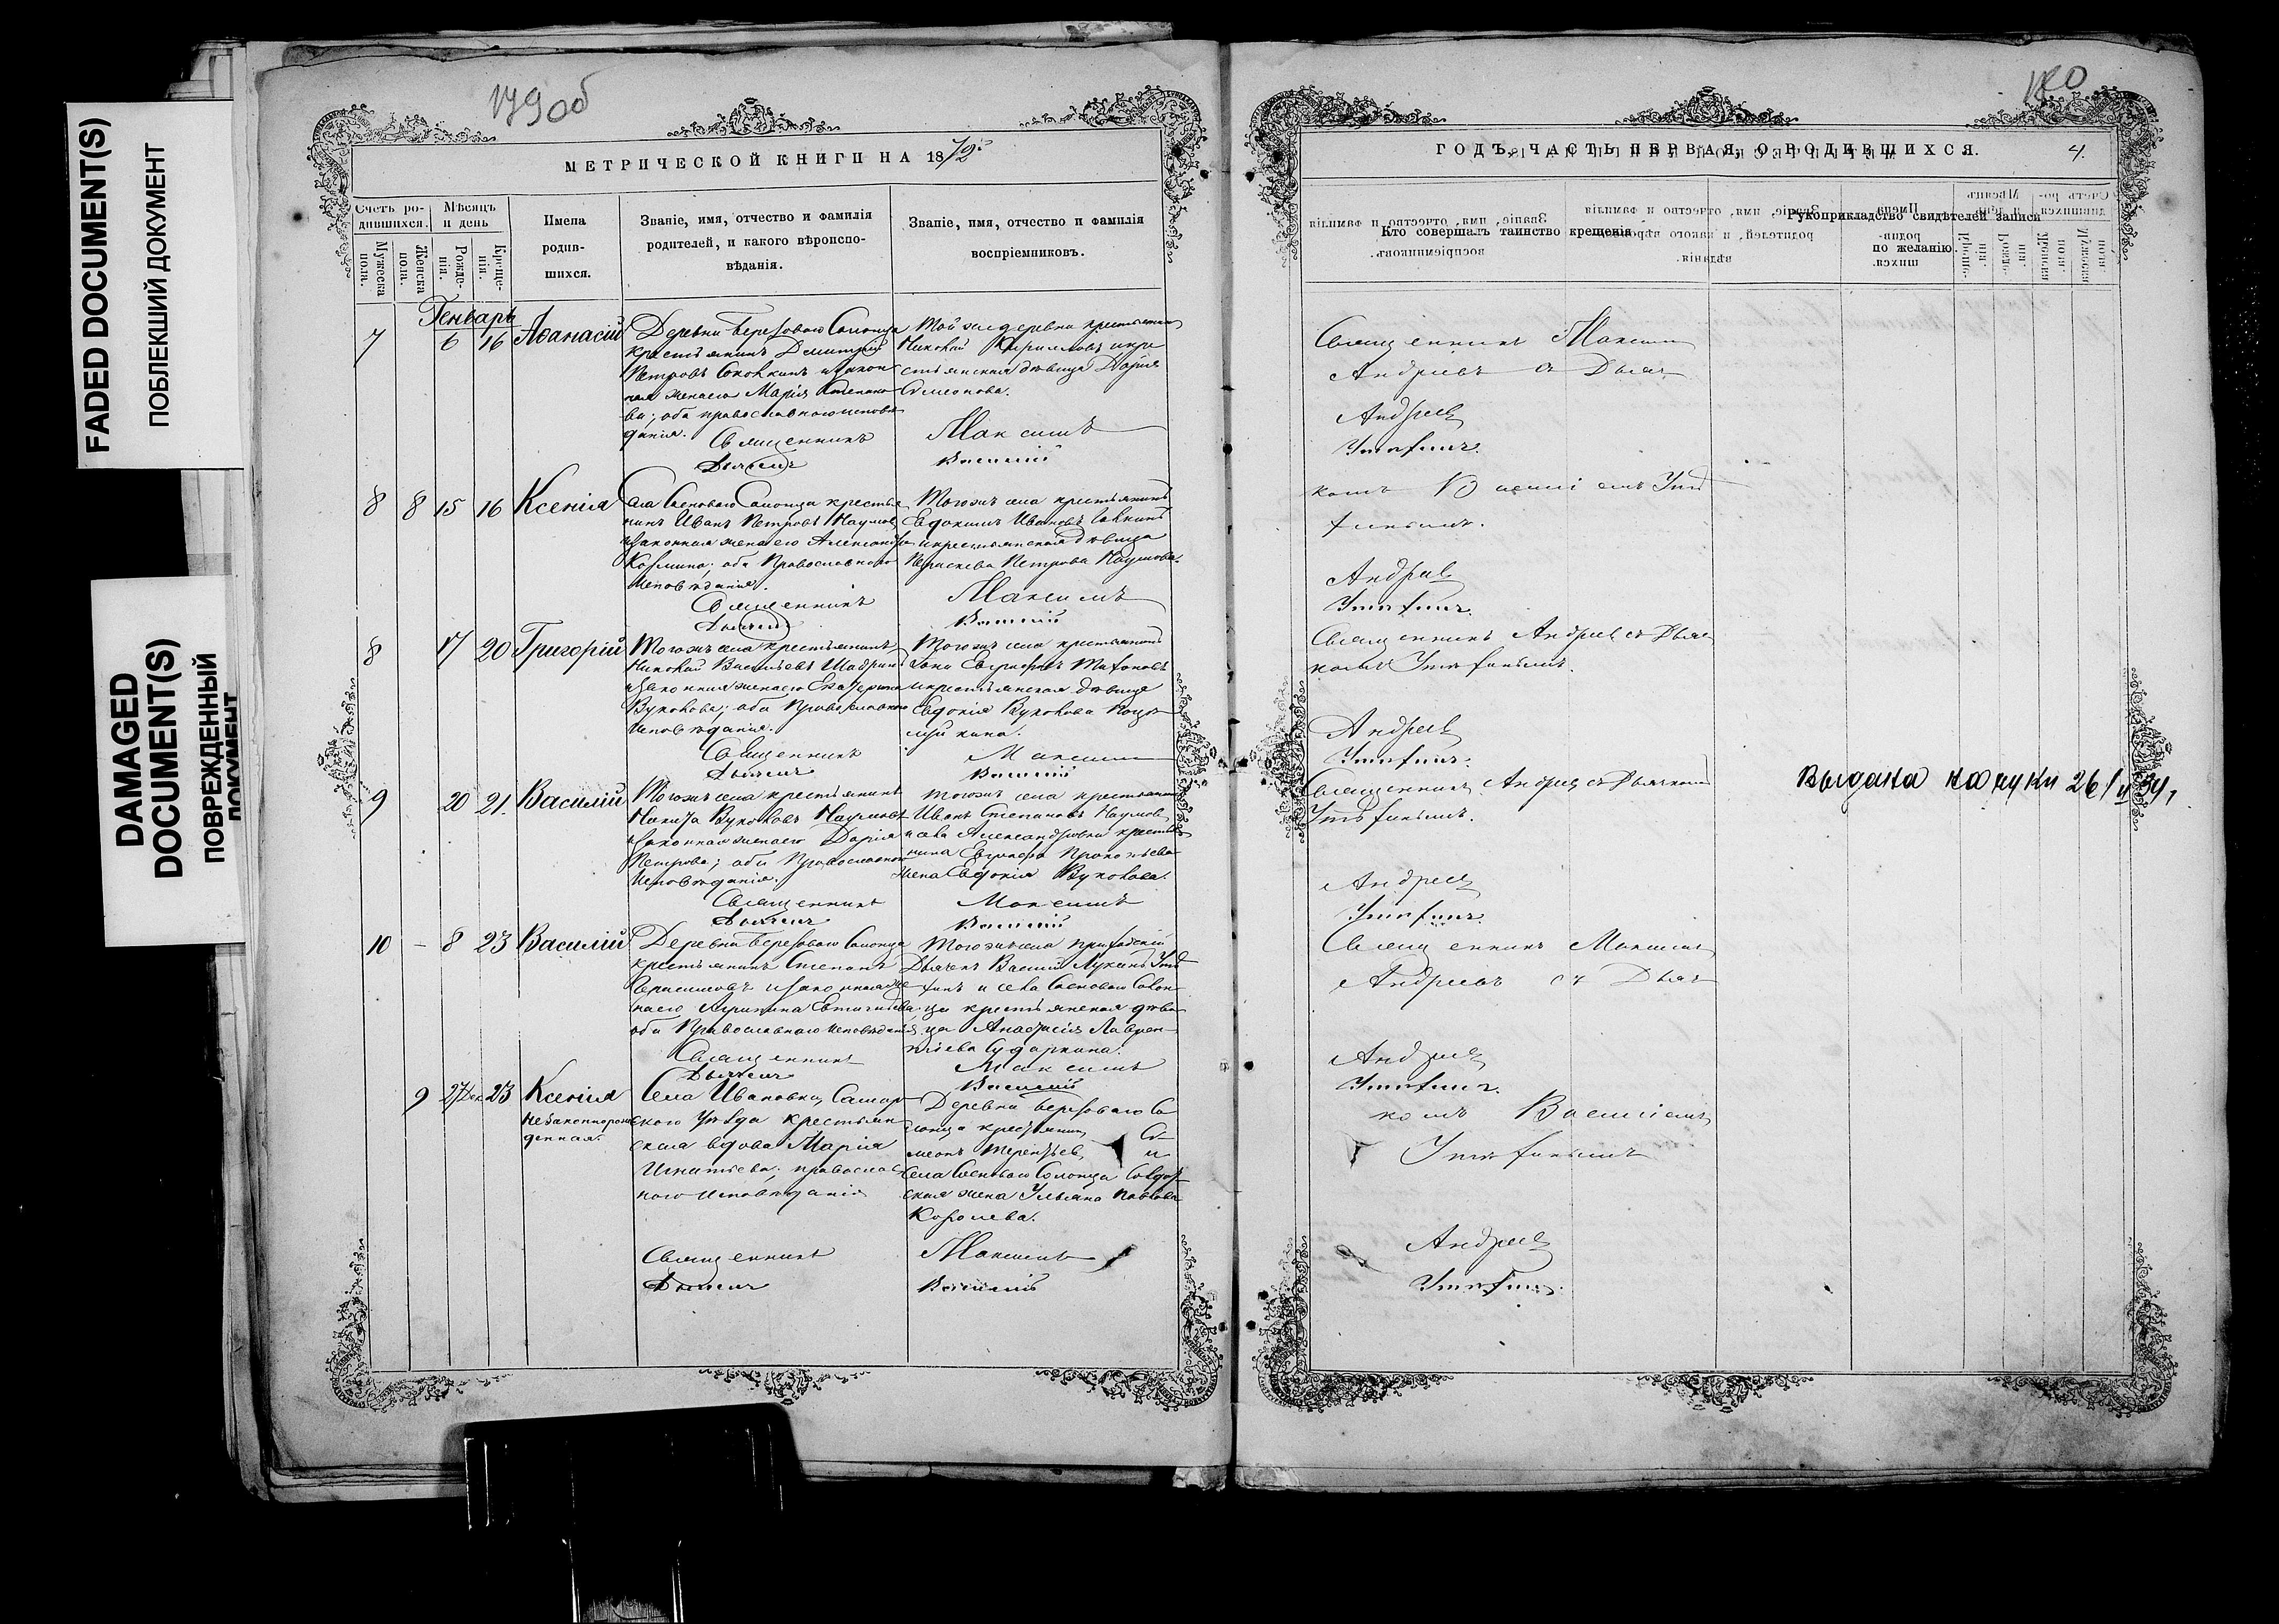 FADED DOCUMENT(S)
ПОБЛЕКШИЙ ДОКУМЕНТ
DAMAGED
DOCUMENT(S)
ПОВРЕЖДЕННЫЙ
ДОКУМЕНТ
179об
МЕТРИЧЕСКОЙ КНИГИ НА 1872й
Счетъ ро-
дившихся.
Мѣсяцъ
и день
Мужеска
пола.
Женска
пола.
Рожде-
нія.
Креще-
нія.
Имена
родив-
шихся.
Званіе, имя, отчество и фамилія
родителей, и какого вѣроиспо-
вѣданія.
Званіе, имя, отчество и фамилія
воспріемниковъ.
Генварь
7 6 16 Аѳанасій
Деревни Березоваго Солонца
крестьянинъ Димитрій
Петровъ и закон
ная жена его Марія Степано
ва; оба православнаго исповѣ
данія.
Той же деревни крестьянинъ
Николай Кириловъ и кре
стьянская дѣвица Дарія
Симеонова.
Священникъ Максимъ
Дьячекъ Василій
8 8 15 16 Ксенія
Села Сосноваго Солонца крестья
нинъ Иванъ Петровъ Наумовъ
и законная жена его Александра
Козмина; оба Православнаго
исповѣданія.
Тогоже села крестьянинъ
Евдокимъ Ивановъ
и крестьянская дѣвица
Параскева Петрова Наумова.
Священникъ Максимъ
Дьячекъ Василій
8 17 20 Григорій
Тогоже села крестьянинъ
Николай Васильевъ Шадринъ
и законная жена его Екатерина
Вуколова; оба Православнаго
исповѣданія.
Тогоже села крестьянинъ
Евграфовъ
и крестьянская дѣвица
Евдокія Вуколова
Священникъ Максимъ
Дьячекъ Василій
9 20 21. Василій
Тогоже села крестьянинъ
Никита Вуколовъ Наумовъ
и законная жена его Дарія
Петрова; оба Православнаго
исповѣданія.
Тогоже села крестьянинъ
Иванъ Степановъ Наумовъ
и села Александровки крестья
нина Евграфа Прокопьева
жена Евдокія Вуколова.
Священникъ Максимъ
Дьячекъ Василій
10 – 8 23 Василій
Деревни Березоваго Солонца
крестьянинъ Степанъ
Герасимовъ и законная же
на его Агрипина
оба Православнаго исповѣданія.
Тогоже села приходскій
Дьячекъ Василій Лукинъ
и села Сосноваго Солон
ца крестьянская дѣви
ца Анастасія Лаврен
тіева Сударкина.
Священникъ Максимъ
Дьячекъ Василій
9 27 Дек 23 Ксенія
Незаконнорож
денная.
Села Ивановки Самар
скаго Уѣзда крестьян
ская вдова Марія
Игнатьева; православ
наго исповѣданія
Деревни Березоваго Со
лонца крестьянинъ Си
меонъ Терентьевъ и
села Сосноваго Солонца солдат
ская жена Ульяна Павлова
Королева.
Священникъ Максимъ
Дьячекъ Василій
180
ГОДЪ, ЧАСТЬ ПЕРВАЯ, О РОДИВШИХСЯ.
4.
Кто совершалъ таинство крещенія
Рукоприкладство свидѣтелей записи
по желанію.
Священникъ Максимъ
Андреевъ съ Дьяч
Андреевъ
комъ Василіемъ
Андреевъ
Священникъ Андреевъ съ Дьяч
комъ
Андреевъ
Священникъ Андреевъ съ Дьячкомъ
Выдана 26/II 34,
Андреевъ
Священникъ Максимъ
Андреевъ съ Дьяч
Андреевъ
комъ Василіемъ
Андреевъ